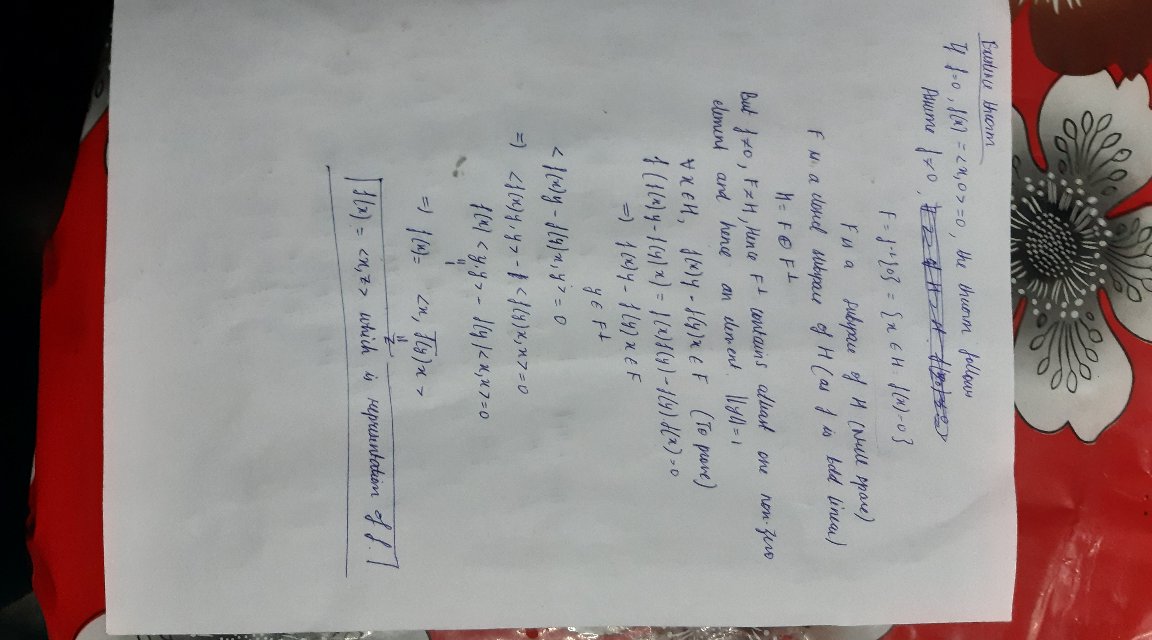 Existence theorm
If f=0, f(x) = <x,0> =0, the theorm follows
Assume f≠0,
F = f⁻¹{0} = {x ∈ H f(x)=0}
F is a subspace of H (Null space)
F is a closed subspace of H (as f is bdd linear)
H = F ⊕ F⊥
But f≠0, F≠H, Hence F⊥ contains atleast one non-zero
element and hence an element. ||y||=1
∀x∈H, f(x)y - f(y)x ∈ F (To prove)
f(f(x)y - f(y)x) = f(x)f(y) - f(y)f(x) = 0
=> f(x)y - f(y)x ∈ F
y ∈ F⊥
<f(x)y - f(y)x, y> = 0
=> <f(x)y, y> - <f(y)x, x> = 0
f(x) <y,y> - f(y)<x,x> = 0
=
1
=> f(x) = <x, \overline{f(y)}x >
=
z
f(x) = <x,z> which is representation of f.